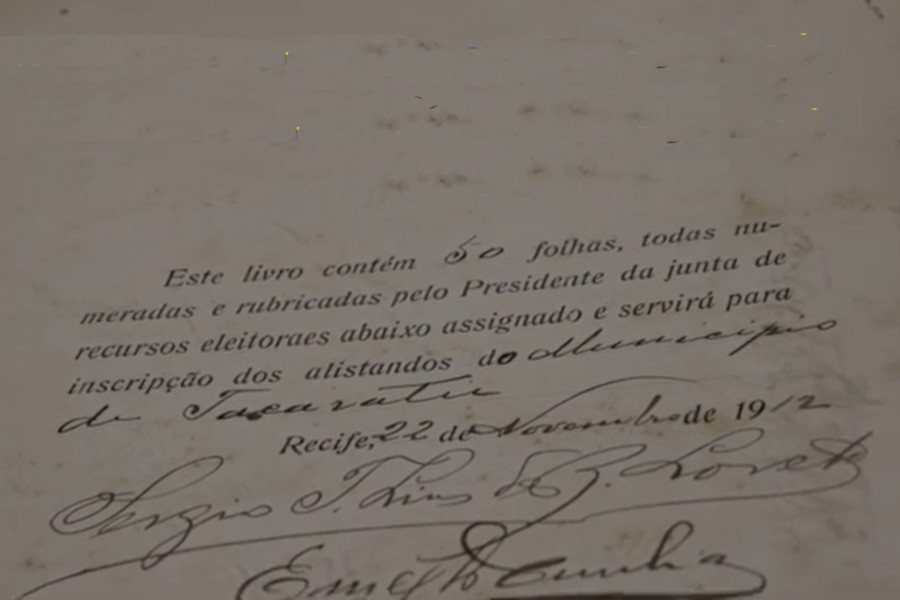 Este livro contém 50 folhas, todas nu-
meradas e rubricadas pelo Presidente da junta de
recursos eleitoraes abaixo assignado e servirá para
inscripção dos alistandos do Municipio
de Tacaratú
Recife, 22 de Novembro de 1912
Sergio T. Lins de B. Loreto
Cunha